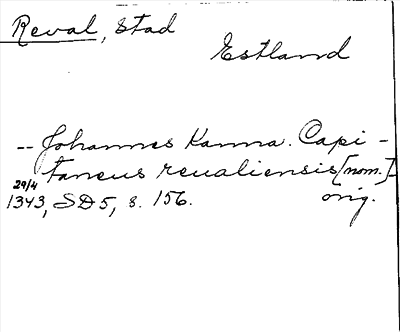 Reval, Stad
Estland
-- Johannes Kanna. Capi-
taneus reualiensis [nom.]-
29/4
1343, SD 5, s. 156. orig.